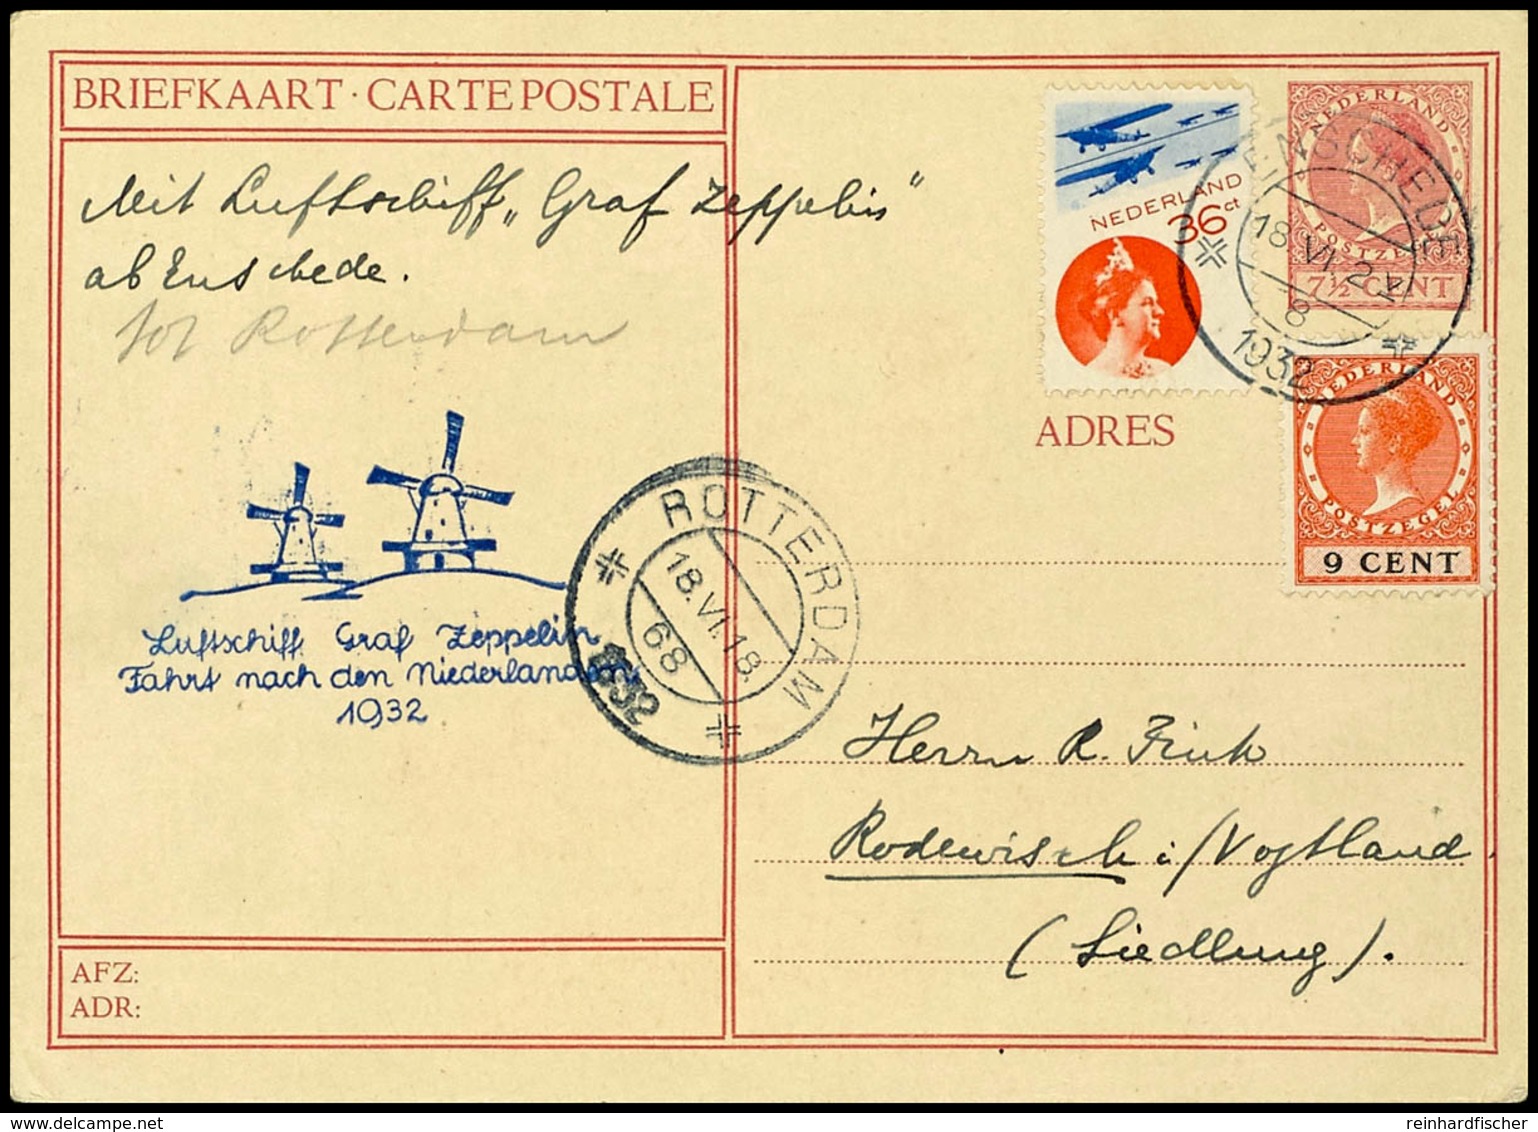 BRIEFKAART · CARTE POSTALE
Mit Luftschiff „Graf Zeppelin"
ab Enschede.
bis Rotterdam
NEDERLAND
36 ct
NEDERLAND
POSTZEGEL
7½ CENT
ENSCHEDE
18.VI.2
8
1932
NEDERLAND
POSTZEGEL
9 CENT
ADRES
Luftschiff Graf Zeppelin
Fahrt nach den Niederlanden
1932
ROTTERDAM
18.VI.18
68
1932
Herrn R. Fink
Rodewisch i/Vogtland.
(Siedlung).
AFZ:
ADR:
reinhardfischer